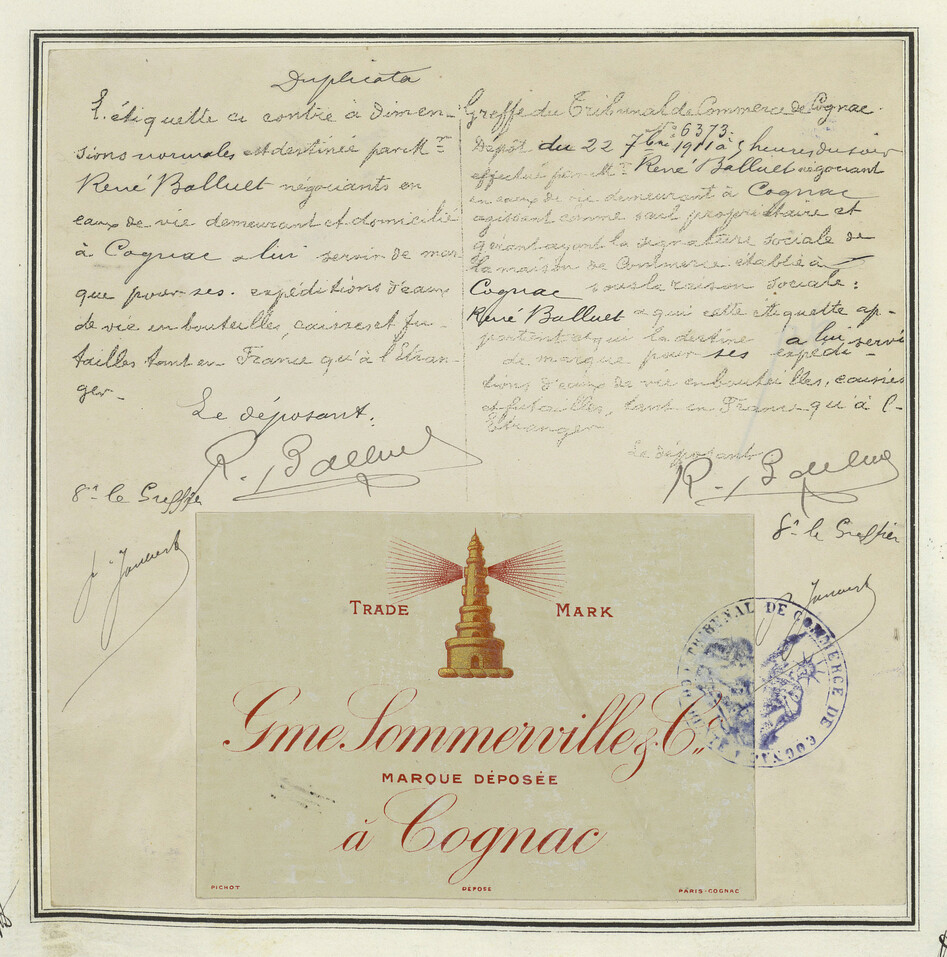 Duplicata
L'étiquette ci contre à dimen-
sions normales est destinée par Mr
René Balluet négociants en
eaux de vie demeurant et domicilié
à Cognac à lui servir de mar-
que pour ses expéditions d'eaux
de vie en bouteilles, caisses et fu-
tailles tant en France qu'à l'étran-
ger.
Le déposant.
R. Balluet
Pr le Greffier
Greffe du Tribunal de Commerce de Cognac.
No 6373.
Dépôt du 22 7bre 1911 à 5 heures du soir
effectué par Mr René Balluet négociant
en eaux de vie demeurant à Cognac
agissant comme seul propriétaire et
qu'ayant la signature sociale de
la maison de Commerce établie à
Cognac sous la raison sociale:
René Balluet a qui cette étiquette ap-
partient et qui la destine à lui servir
de marque pour ses expédi-
tions d'eaux de vie en bouteilles, caisses
et futailles, tant en France qu'à l'-
Etranger
Le déposant
R. Balluet
Pr le Greffier
TRADE MARK
Gme Sommerville & Co
MARQUE DÉPOSÉE
à Cognac
PICHOT DÉPOSÉ PARIS-COGNAC
TRIBUNAL DE COMMERCE DE COGNAC